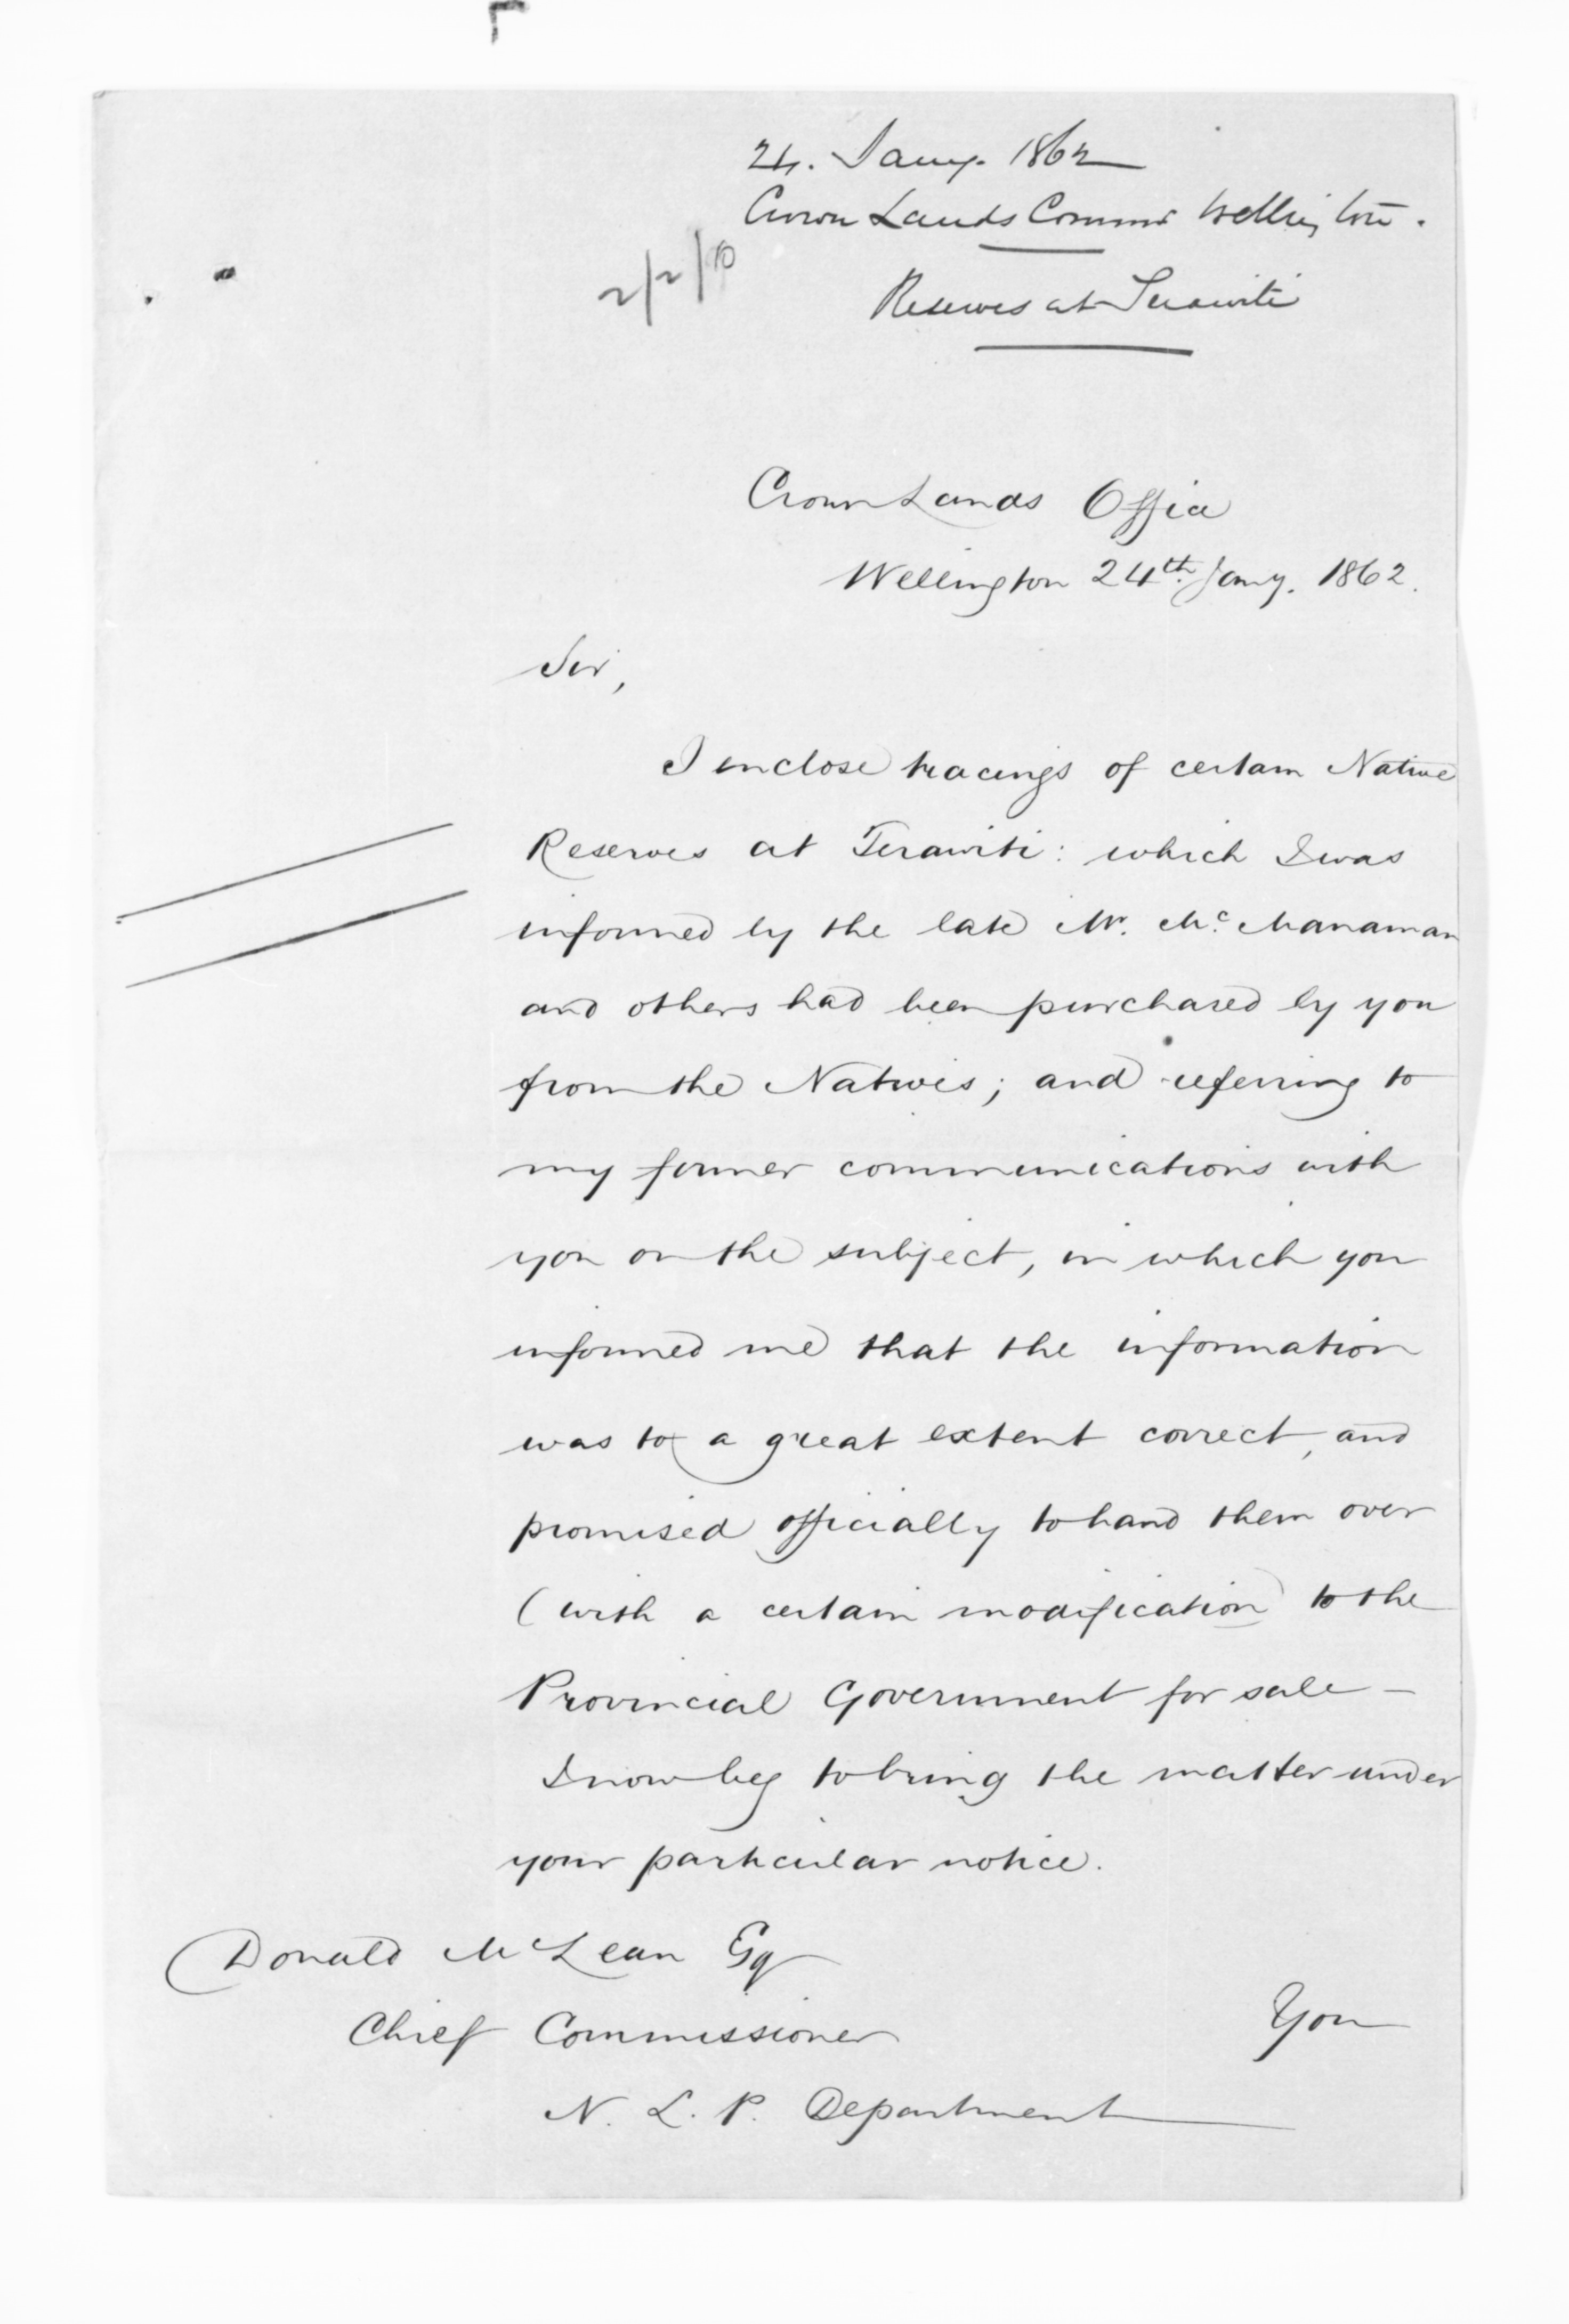 24. Jany. 1862
Crown Lands Commr Wellington.
2/2/10
Reserves at Terawiti
Crown Lands Office
Wellington 24th. Jany. 1862.
Sir,
I enclose tracings of certain Native
Reserves at Terawiti: which I was
informed by the late Mr. McManaman
and others had been purchased by you
from the Natives; and referring to
my former communications with
you on the subject, in which you
informed me that the information
was to a great extent correct, and
promised officially to hand them over
(with a certain modification) to the
Provincial Government for sale —
I now beg to bring the matter under
your particular notice.
Donald McLean Esq
Chief Commissioner
You
N. L. P. Department